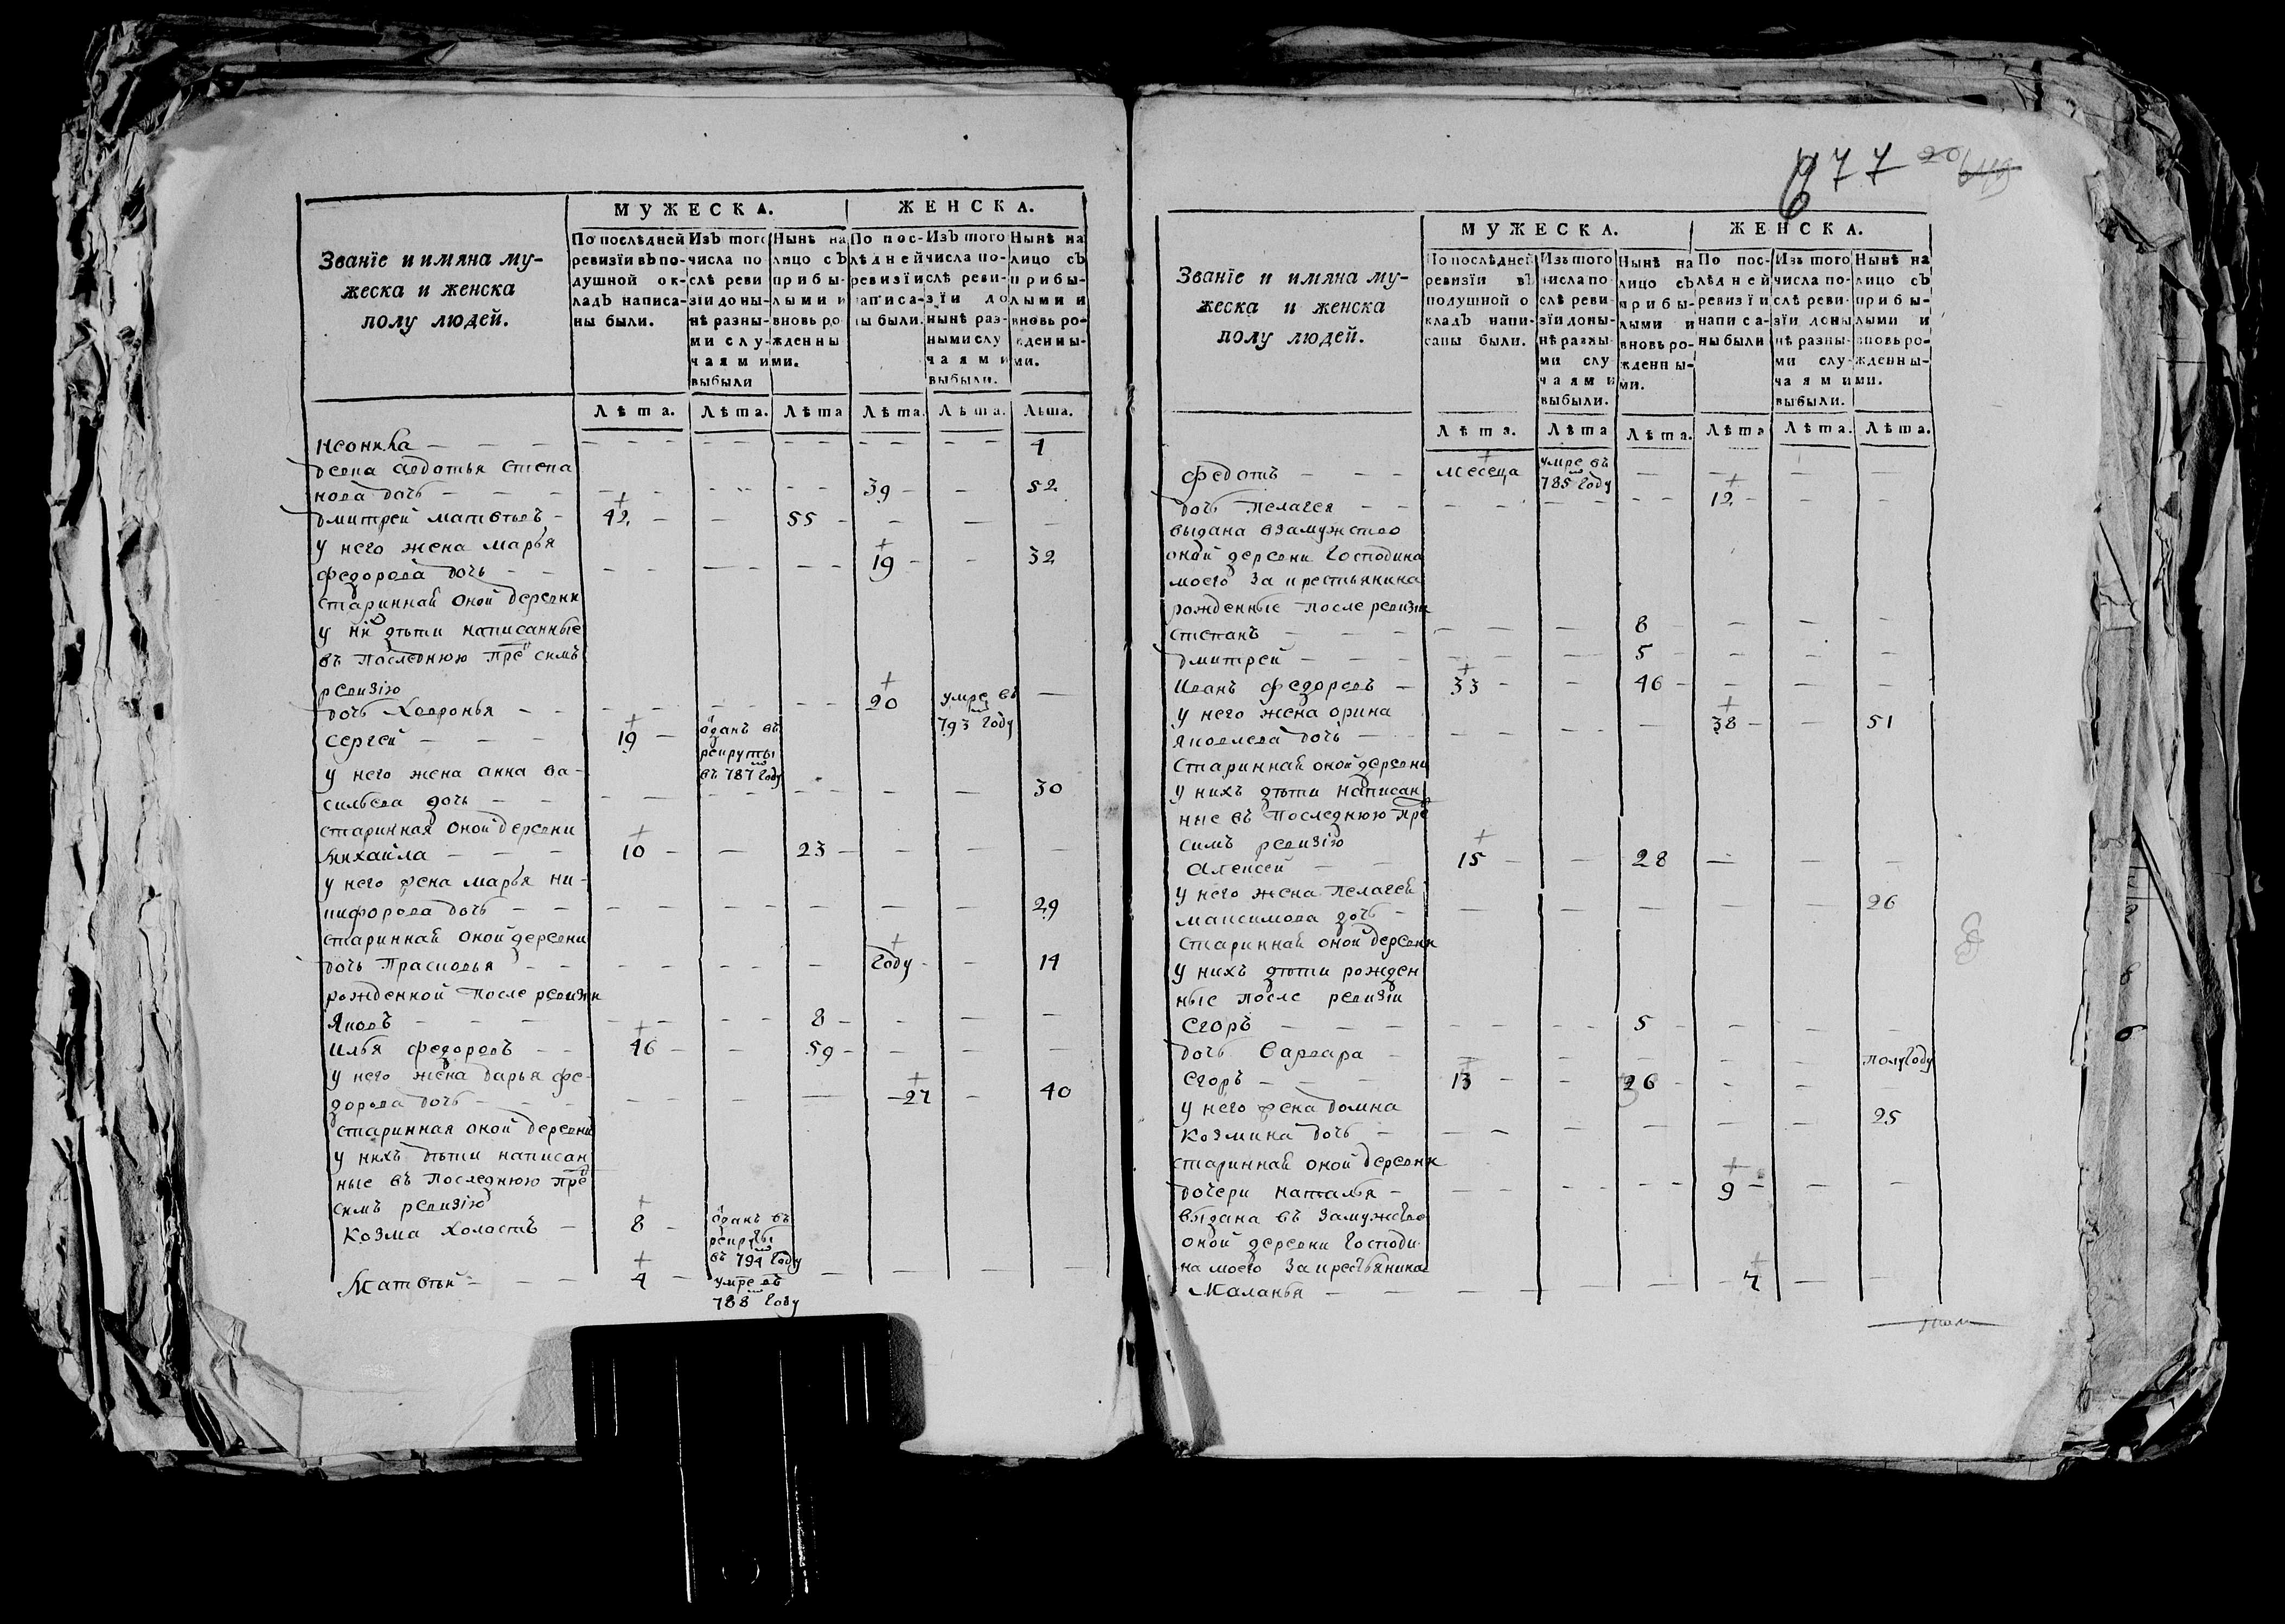 Званїе и имяна му-
жеска и женска
полу людей.
МУЖЕСКА.
ЖЕНСКА.
По послѣдней ревизїи въ по-душной ок-ладъ написа-ны были.
Изъ того числа по слѣ реви зїи до ны-нѣ разны-ми слу-чаями выбыли
Нынѣ на лицо съ прибы-лыми и вновь ро жденны ми.
По пос-лѣдней ревизїи написа-ны были.
Изъ того числа по-слѣ реви-зїи до нынѣ раз-ными слу чаями выбыли.
Нынѣ на лицо съ прибы-лыми и вновь ро-жденны-ми.
Лѣта. Лѣта. Лѣта Лѣта. Лѣта. Лѣта.
— — — 1
вдова авдотья степа
нова дочь — 39 — 52
дмитрей матвѣевъ — 42 — 55
у него жена марья
федорова дочь — 19 — 32
стариннай оной деревни
у ни дѣти написанные
въ последнюю пре симъ
ревизїю
дочь ховронья — 20 умре въ 793 году
сергей — 19 — ѿданъ въ рекруты въ 787 году
у него жена анна ва-
сильева дочь — 30
старинная оной деревни
михаила — 10 — 23
у него жена марья ни-
кифорова дочь — 29
стариннай оной деревни
дочь Прасковья — году — 14
рожденной после ревизїи
Яковъ — 8
илья федоровъ — 46 — 59
у него жена дарья фе-
дорова дочь — 27 — 40
старинная оной деревни
у нихъ дѣти написан
ные въ последнюю пре
симъ ревизїю
козма холостъ — 8 — ѿданъ въ рекруты въ 794 году
Матвѣй — 4 — умре въ 788 году
677 20
Званїе и имяна му-
жеска и женска
полу людей.
МУЖЕСКА.
ЖЕНСКА.
По послѣдней ревизїи въ подушной о кладъ напи-саны были.
Изъ того числа по слѣ реви-зїи до ны-нѣ разны-ми слу чаями выбыли.
Нынѣ на лицо съ прибы-лыми и вновь ро-жденны-ми.
По пос-лѣдней ревизїи написа-ны были
Изъ того числа по-слѣ реви-зїи до ны нѣ разны-ми слу-чаями выбыли.
Нынѣ на лицо съ прибы-лыми и вновь ро-жденны-ми.
Лѣта. Лѣта Лѣта. Лѣта Лѣта. Лѣта.
федотъ — месеца умре въ 785 году
дочь пелагея — 12
выдана взамужство
оной деревни господина
моего за крестьянина
рожденные после ревизїи
степанъ — 8
дмитрей — 5
Иванъ федоровъ — 33 — 46
у него жена орина
яковлева дочь — 38 — 51
стариннай оной деревни
у нихъ дѣти написан
ные въ последнюю пре
симъ ревизїю
Алексей — 15 — 28
у него жена пелагея
максимова дочь — 26
стариннай оной деревни
у нихъ дѣти рожден
ные после ревизїи
Егоръ — 5
дочь варвара — полугоду
Егоръ — 13 — 26
у него жена домна
Козмина дочь — 25
стариннай оной деревни
дочери наталья — 9
выдана въ замужство
оной деревни господи
на моего за крестьянина
Маланья — 7